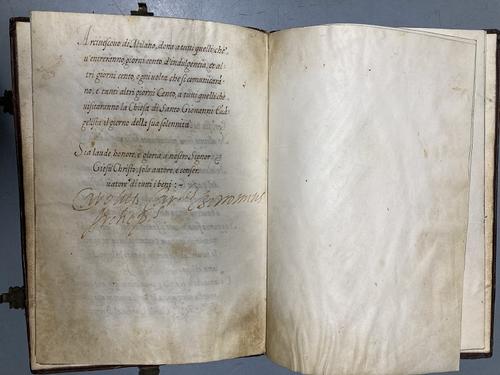 Arciuescouo di Milano, dona a tutti quelli che
u'entreranno giorni cento d'indulgenza, et al,
tri giorni cento, ogni uolta che si comunicarã,
no, e tanti altri giorni Cento, a tutti quelli che
uisitaranno la Chiesa di Santo Giouanni Euã,
gelista il giorno della sua solennità.
Sia laude honore, e gloria a nostro Signor
Giesù Christo, solo autore, e conser
uatore di tutti i beni :~
Carolus Car.lis Borromeus
Archiep.s